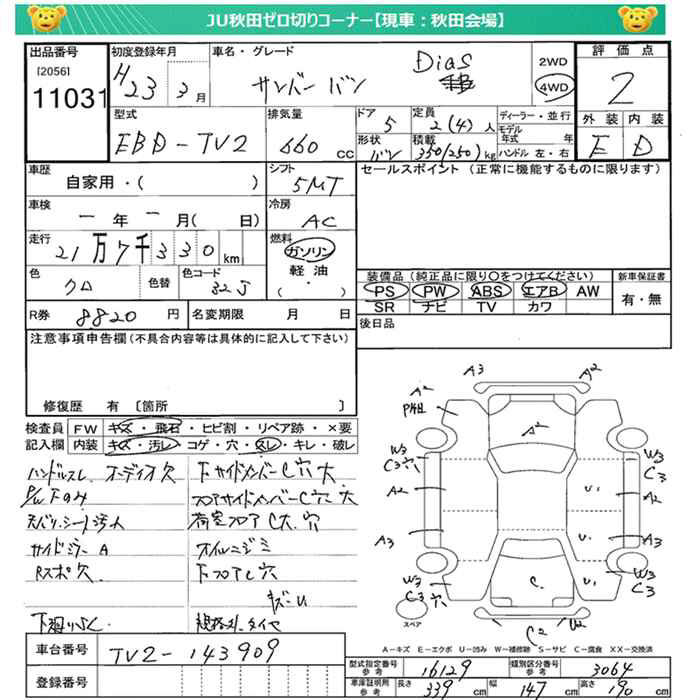 JU秋田ゼロ切りコーナー【現車：秋田会場】
出品番号
[2056]
11031
初度登録年月
H23 3月
車名・グレード
サンバー バン Dias
2WD
4WD
評価点
2
外装 内装
E D
型式
EBD-TV2
排気量
660 cc
ドア
5
形状
バン
定員
2(4)人
積載
350(250)kg
ディーラー・並行
モデル年式 年
ハンドル 左・右
車歴
自家用・( )
シフト
5MT
セールスポイント (正常に機能するものに限ります)
車検
ー年ー月( 日)
冷房
AC
走行
21万7千330km
燃料
ガソリン
軽油
・( )
色
クロ
色替
色コード
32J
装備品 (純正品に限り〇をつけてください)
PS PW ABS エアB AW
SR ナビ TV カワ
新車保証書
有・無
R券 8820円
名変期限 月 日
後日品
注意事項申告欄(不具合内容等は具体的に記入して下さい)
修復歴 有 〔箇所 〕
検査員記入欄
FW キズ・飛石・ヒビ割・リペア跡・×要
内装 キズ・汚レ・コゲ・穴・スレ・キレ・破レ
ハンドルスレ オーディオ欠
P/W下のみ
シート汚れ
サイドミラーA
Rスポ欠
下サイドメンバーC穴大
フロアサイドメンバーC穴大
荷室フロアC大、穴
オイルニジミ
下フロアC穴
キズ・U
下廻りサビC
規格外タイヤ
A3 A2
A2
A2
W3
C3穴
A2
A3
W3
C3穴
W3
C3
U1
A2
U1
A3
W3
U1
C3
C1
C2 U2
スペア
A－キズ E－エクボ U－凹み W－補修跡 S－サビ C－腐食 XX－交換済
車台番号
TV2-143909
登録番号
型式指定番号 参考
16129
類別区分番号 参考
3064
車庫証明用 参考
長さ 339cm
幅 147cm
高さ 19 cm